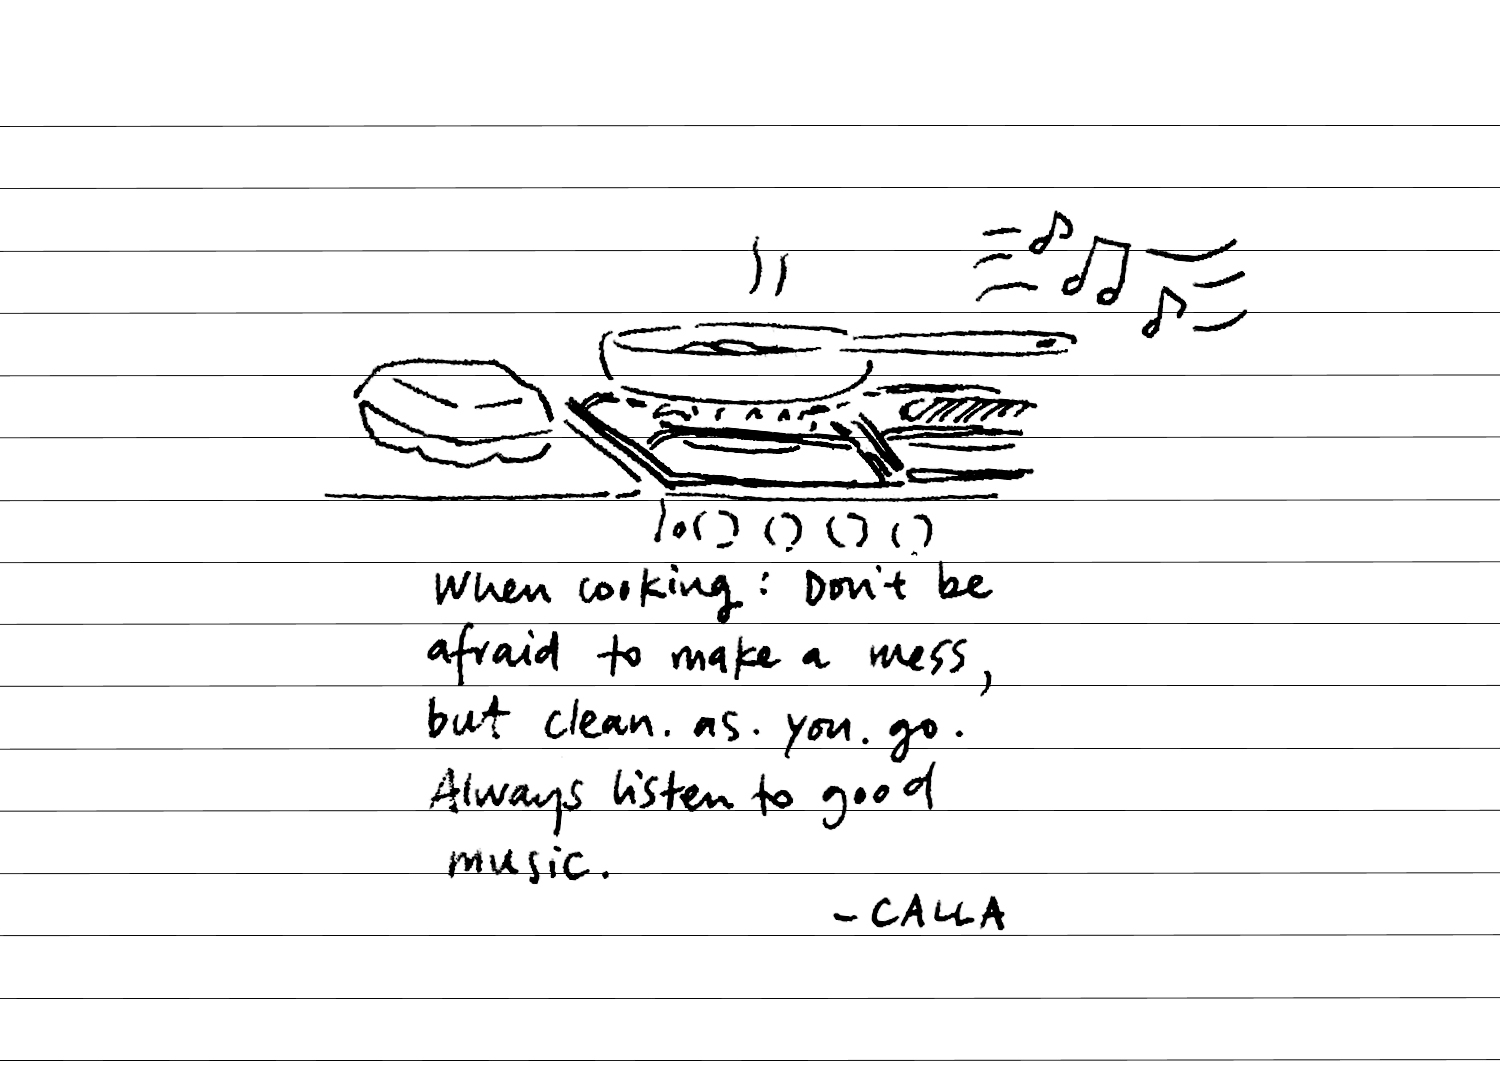 When cooking: Don't be
afraid to make a mess,
but clean. as. you. go.
Always listen to good
music.
- CALLA